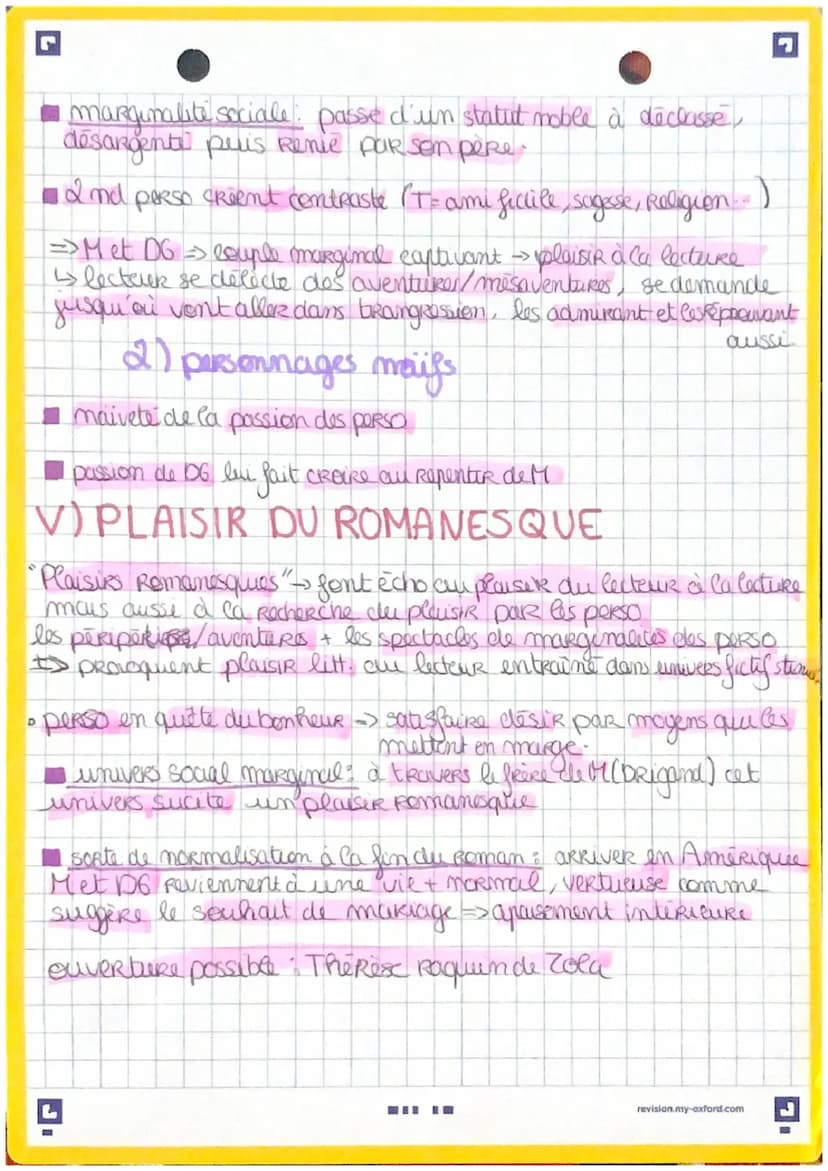 ■ marginalité sociale : passe d'un statut noble à déclassé,
désargenté puis renié par son père.
■ 2nd perso créent contraste (T= ami fidèle, sagesse, religion...)
=> M et DG => couple marginal captivant → plaisir à la lecture
↳ lecteur se délecte des aventures/mésaventures, se demande
jusqu'où vont aller dans transgression, les admirant et les réprouvant
aussi.
2) personnages naïfs
■ naiveté de la passion des perso
■ passion de DG lui fait croire au repentir de M
V) PLAISIR DU ROMANESQUE
"Plaisirs Romanesques" → font écho au plaisir du lecteur à la lecture
mais aussi à la recherche du plaisir par les perso
les péripéties/aventures + les spectacles de marginalités des perso
↳ provoquent plaisir litt. au lecteur entraîné dans univers fictif
• perso en quête du bonheur => satisfaire désir par moyens qui les
mettent en marge.
■ univers social marginal : à travers le frère de M (brigand) cet
univers sucite un plaisir romanesque
■ sorte de normalisation à la fin du roman : arriver en Amérique
M et DG reviennent à une vie + normal, vertueuse comme
suggère le souhait de mariage => apaisement intérieure
ouverture possible : Thérèse Raquin de Zola
revision.my-oxford.com